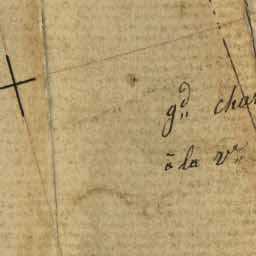 gd char
à la Vr